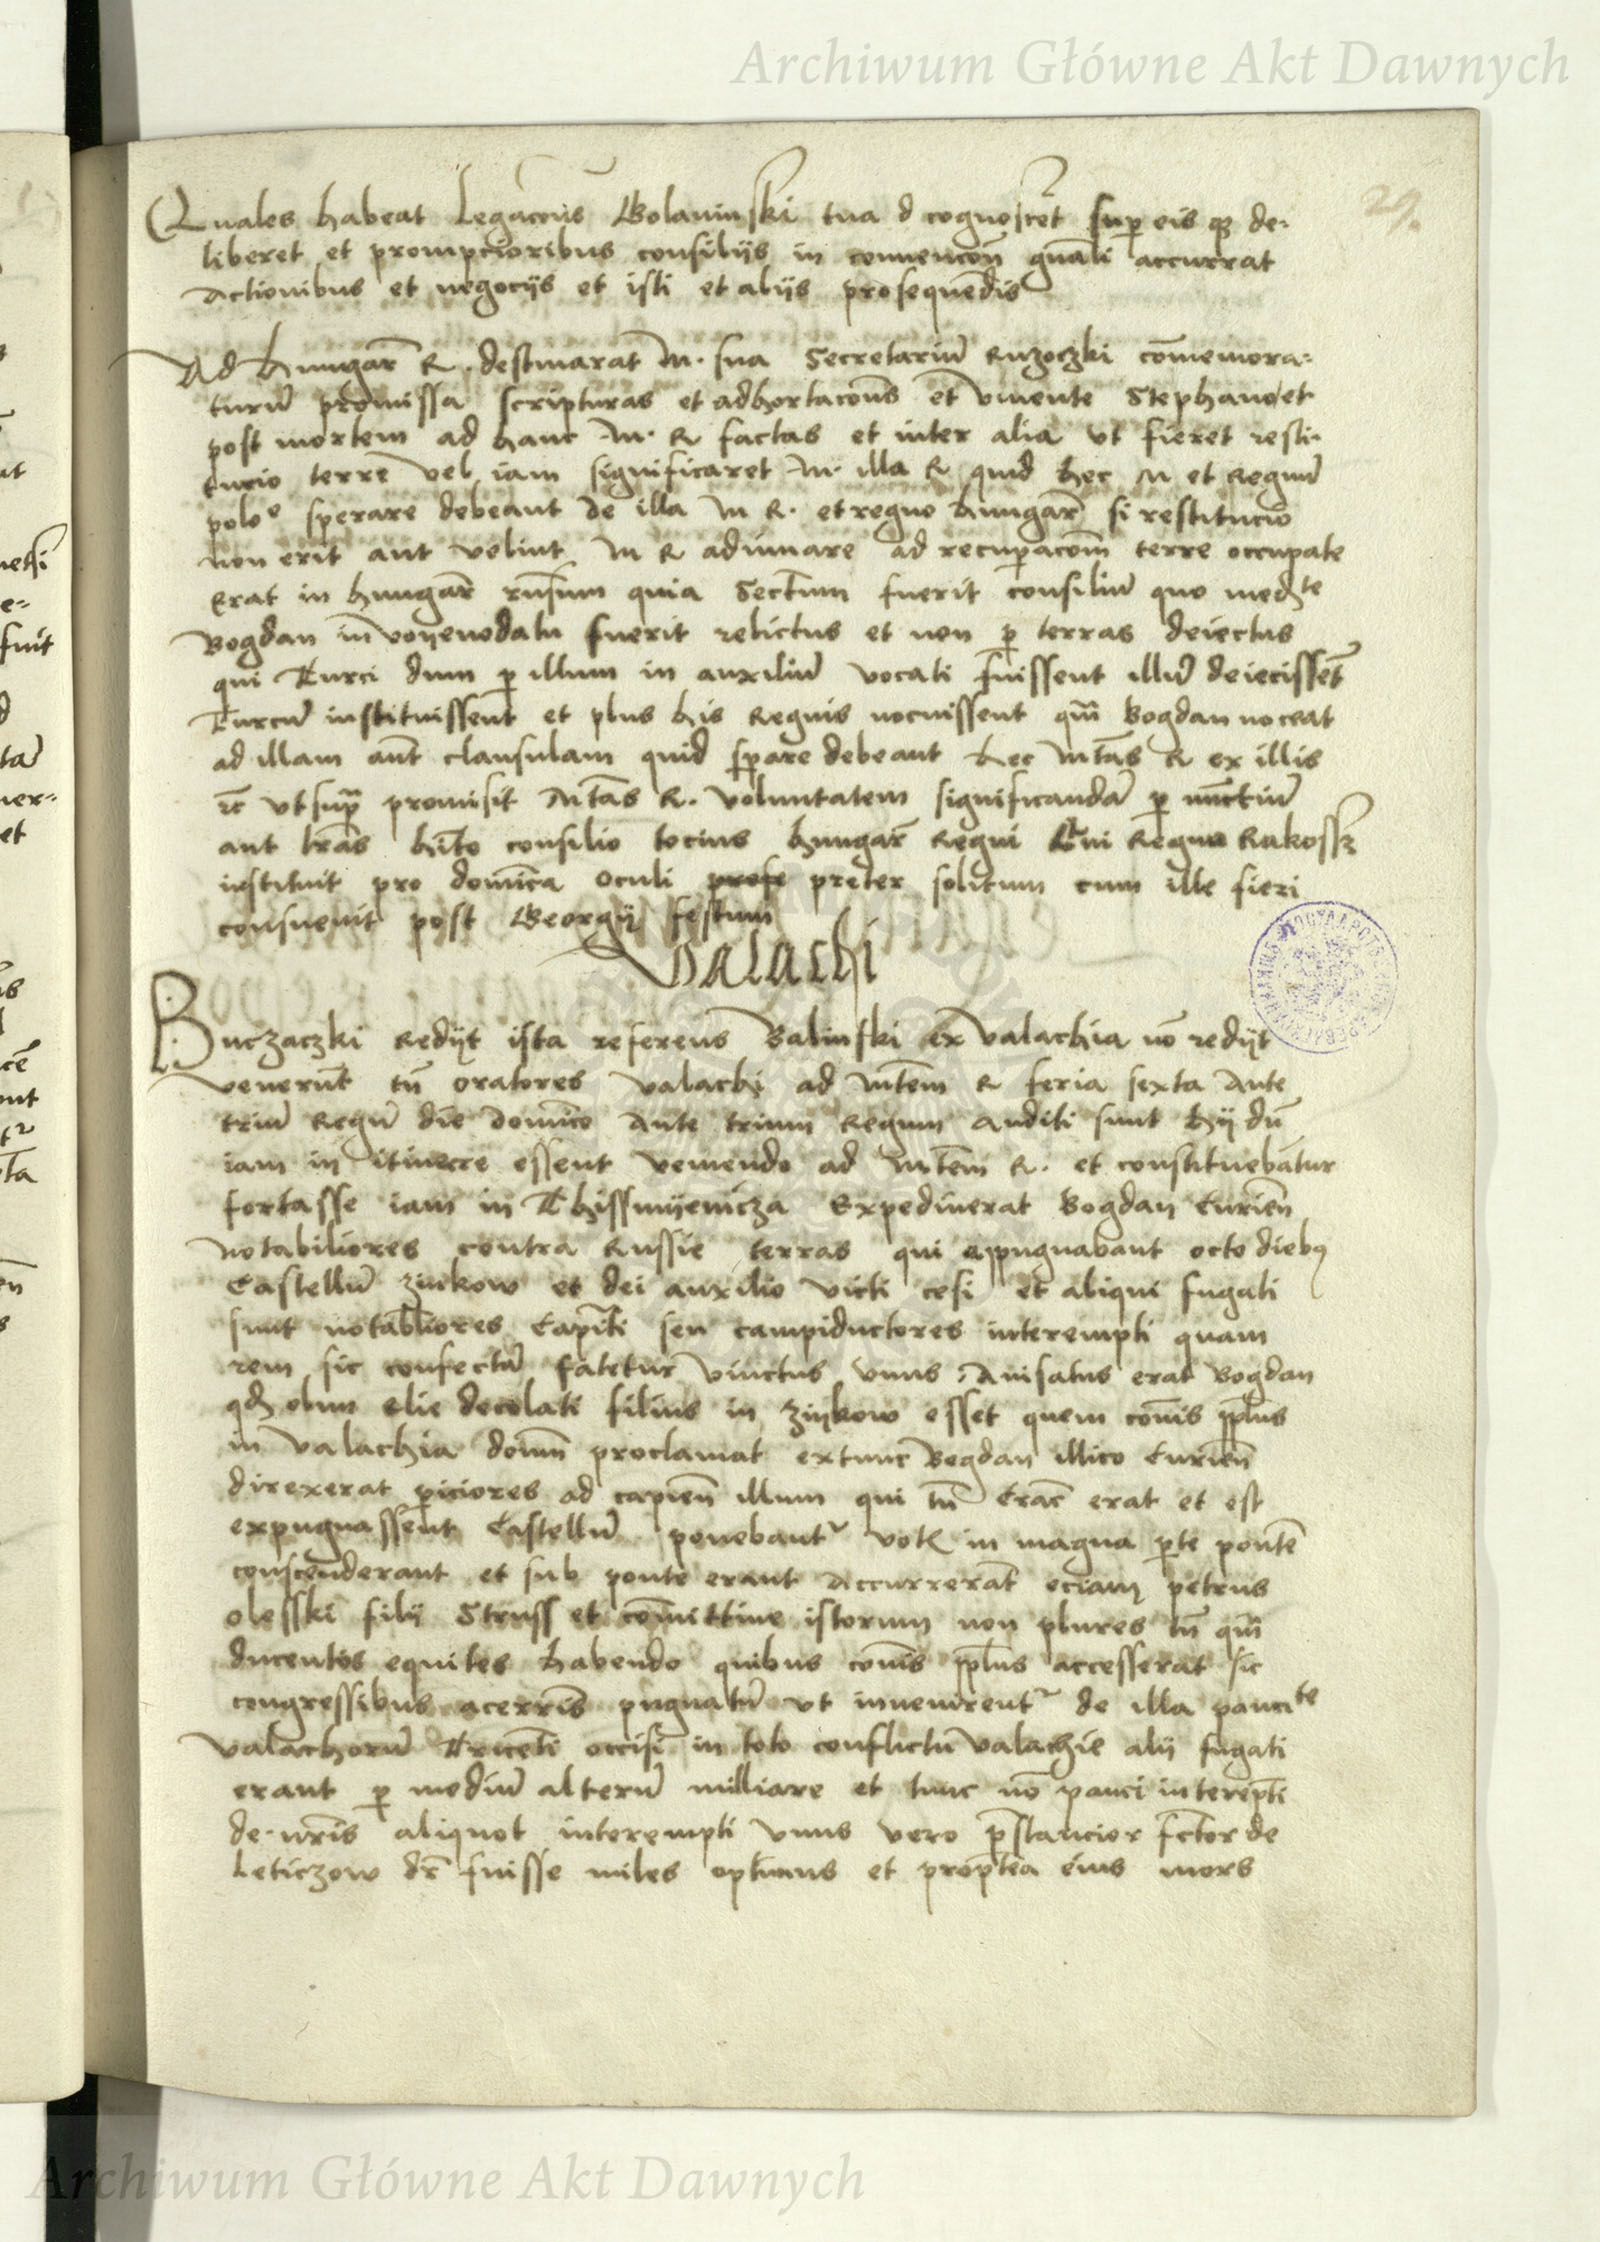 Archiwum Główne Akt Dawnych
29.
Quales habeat Legacōns Golaninski tua d cognoscet sup eis qz de-
liberet et prompcioribus consilijs in convencōn gnali accurrat
actionibus et negocijs et isti et alijs prosequendis
Ad Hungar R. destinarat M. sua Secretariū Ruzoczki cōmemora-
turū promissa scripturas et adhortacōns et vivente Stephano et
post mortem ad hanc M. R factas et inter alia ut fieret resti-
tucio terre vel iam significaret M. illa R quid hec M et Regnū
poloe sperare debeant de illa M R. et regno Hungar si restitucio
non erit aut velint M R adiuvare ad recupacōm terre occupate
Erat in hungar rusum quia Sectum fuerit consiliū quo medte
Bogdan in voyevodatu fuerit relictus et non p terras deiectus
qui Turci dum p illum in auxiliū vocati fuissent illū deiecissēt
Turcū instituissent et plus his Regnis nocuissent qm Bogdan noceat
ad illam aut clausulam quid spare debeant hec Mtas R ex illis
rc ut supra promisit Mtas R. voluntatem significandā p nūctiū
aut lras hito consilio tocius hungar Regni Qui Regno Rakossz
instituit pro domica Oculi profe preter solitum cum ille fieri
consuevit post Georgij festum
Valachi
Buczaczki Redijt ista referens Balinski ex Valachia nō redijt
venerūt tn oratores Valachi ad Mtem R feria sexta ante
triū Regū die domico ante trium Regum auditi sunt hij dū
iam in itinere essent veniendo ad Mtem R. et constituebantur
fortasse iam in Thissmyenicza Expediverat Bogdan Curien
notabiliores contra Russie terras qui appugnabant octo dieb9
Castellū zinkow et dei auxilio victi cesi et aliqui fugati
sunt notabliores Capiti seu campiductores interempti quam
rem sic confectā fatetur vinctus unus Avisatus erat Bogdan
qd olim Elie decolati filius in zinkow esset quem cōmis pplus
in Valachia domn proclamat extunc Bogdan illico Curien
direxerat piciores ad capien illum qui tn Crac erat et est
expugnassent Castellū ponebantr vote in magna pte ponte
conscenderant et sub ponte erant accurrerāt eciam petrus
olesski filij Struss et cōmittive istorum non plures tn qm
ducentos equites habendo quibus cōmis pplus accesserat sic
congressibus acerris pugnatū ut invenirentr de illa paucite
Valachorū Triceti occisi in toto conflictu Valachie alij fugati
erant p mediū alterū milliare et tunc nō pauci interepti
de nris aliquot interempti unus vero pstancior fctor de
Leticzow dr fuisse miles optimus et proptea eius mors
Archiwum Główne Akt Dawnych